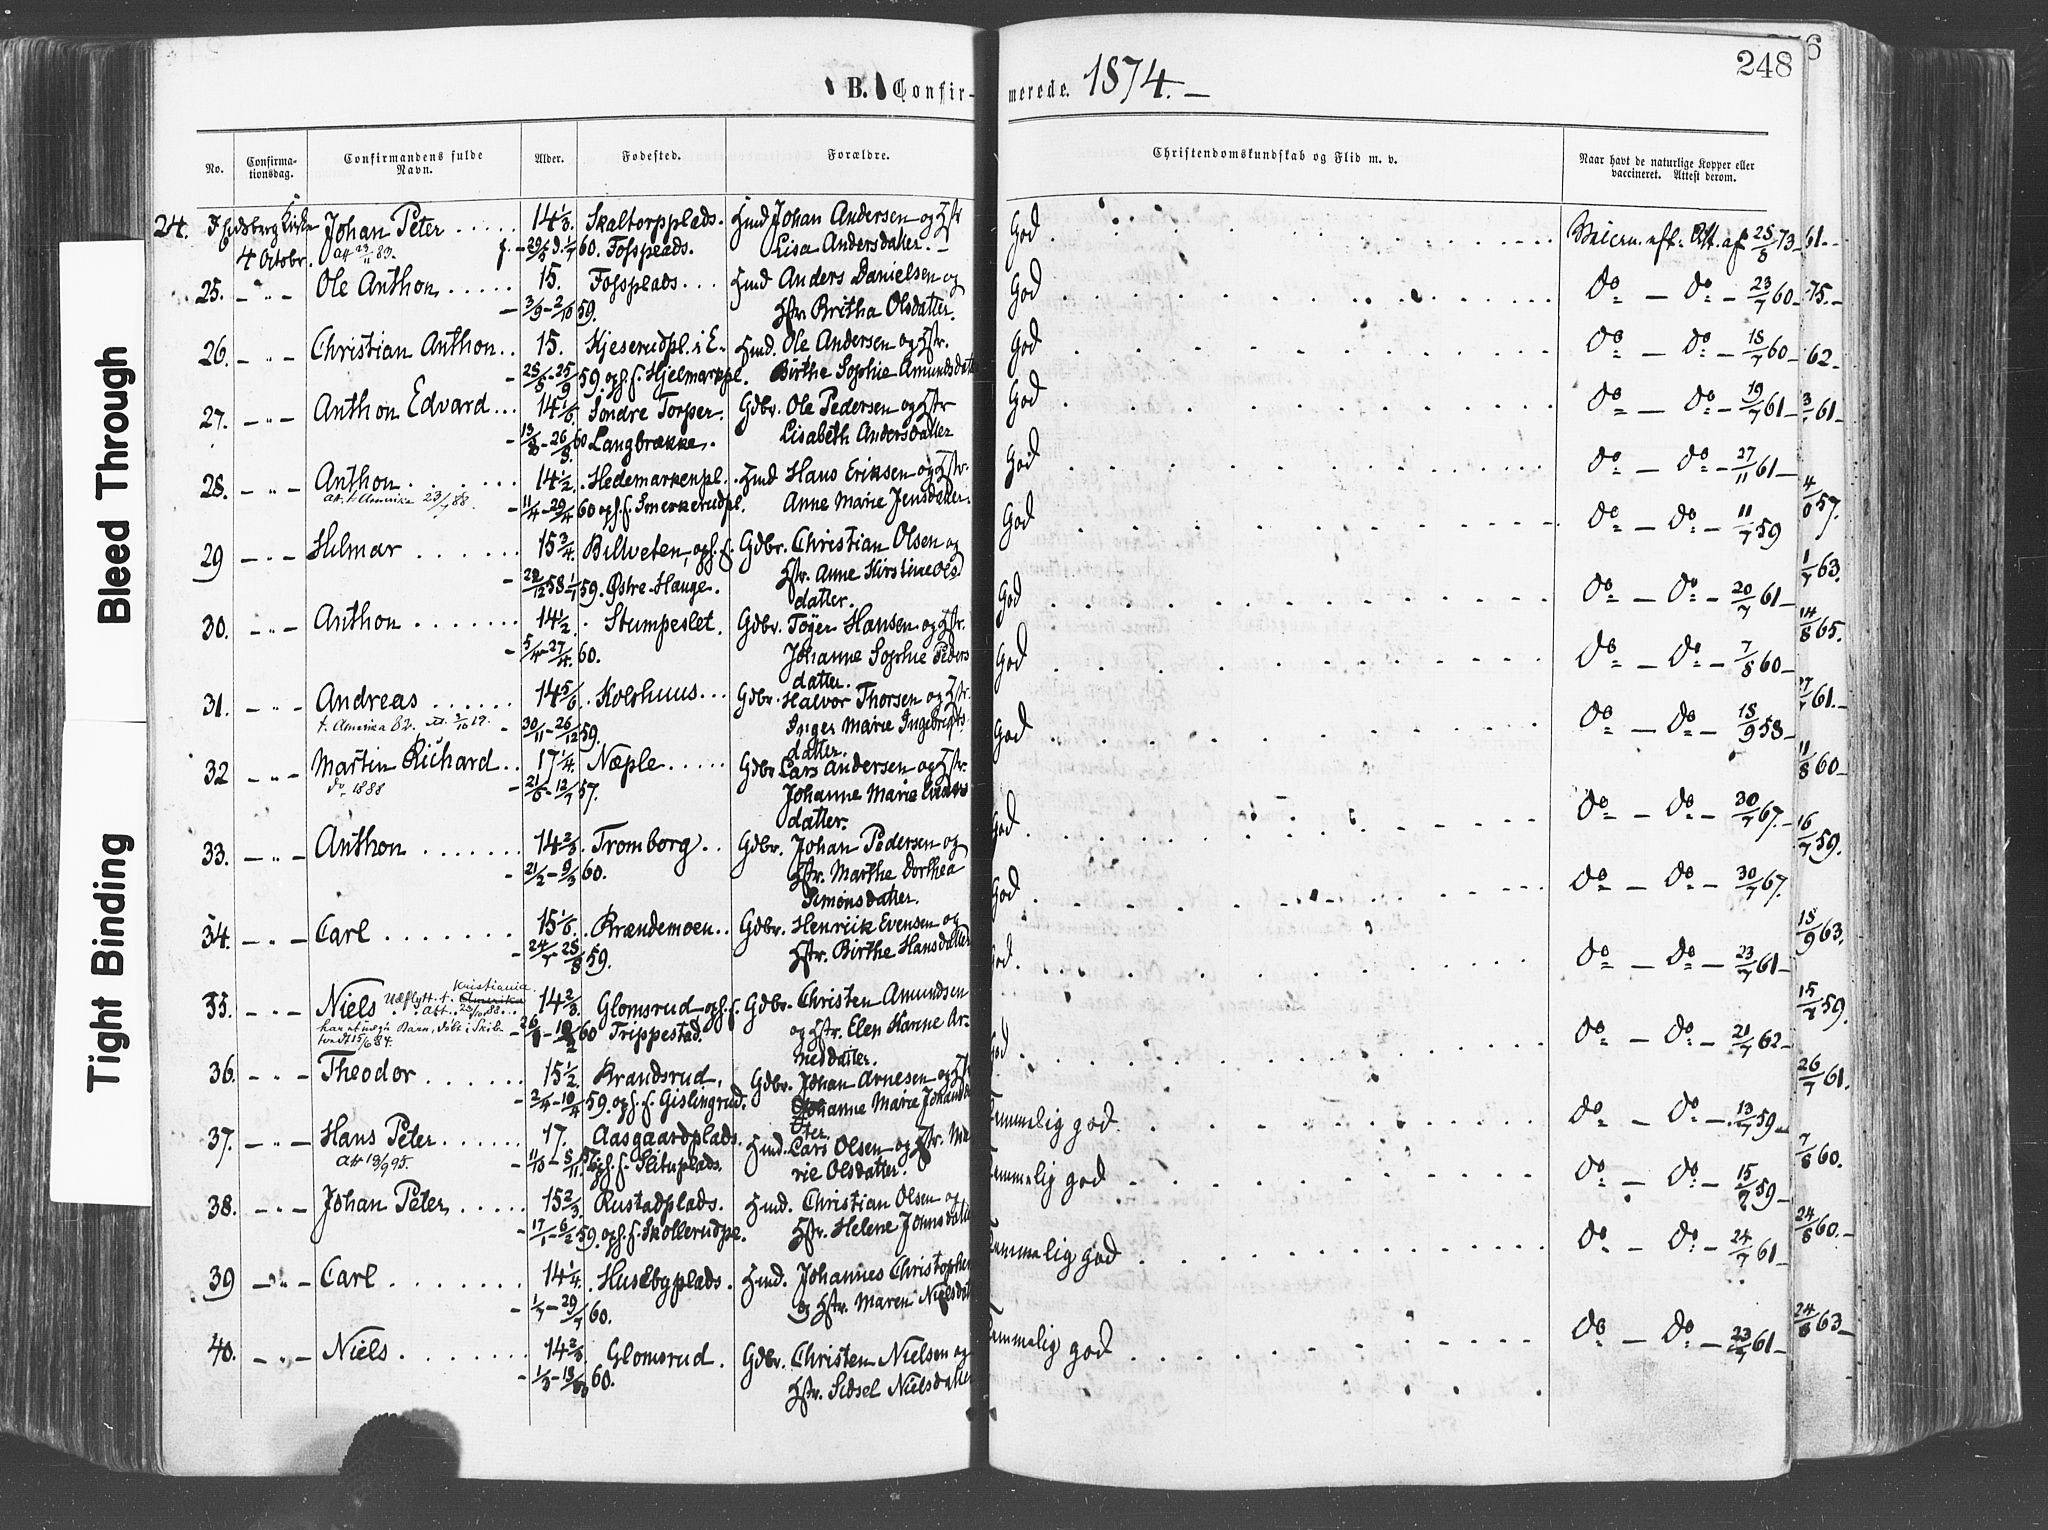 Bleed Through
Tight Binding
B. Confirmerede. 1874.
248
No. Confirmationsdag. Confirmandens fulde Navn. Alder. Fødested. Forældre. Christendomskundskab og Flid m. v. Naar havt de naturlige Kopper eller vaccineret. Attest derom.
24. I Eidsberg Kirke Johan Peter 14 1/3. Skaltorpplads. Hmd Johan Andersen og Hstr God Vaccin. eft. Att. af 25/5 73
4 Octobr. Att 23/11 83. f. 29/5 d. 1/7 60. Fossplads. Lisa Andersdatter.
25. - " - Ole Anthon 15. Fossplads Hmd Anders Danielsen og God do - do - 23/7 60
3/9 - 2/10 59. Hstr Britha Olsdatter.
26. - " - Christian Anthon 15. Kjeserudpl. i E. Hmd. Ole Andersen og Hstr. God do - do - 18/7 60
28/8 - 25/9 59. oph. f. Hjelmarkpl. Birthe Sophie Amundsdatter
27. - " - Anthon Edvard 14 1/6. Søndre Torper Gdbr. Ole Pedersen og Hstr God do - do - 19/7 61
13/8 - 26/8 60 Langbrække. Lisabeth Andersdatter
28. - " - Anthon 14 1/2. Hedemarkenpl. Hmd Hans Eriksen og Hstr. God do - do - 27/11 61
At. t. Amerika 23/7 88. 11/4 - 29/4 60 oph. f. Smerkerudpl. Anne Marie Jensdatter
29 - " - Helmar 15 3/4. Bilveten, oph. f. Gdbr. Christian Olsen og God do - do - 11/7 59
22/12 58 - 1/1 59. Østre-Hauge. Hstr. Anne Kirstine Ols
datter.
30. - " - Anthon 14 1/2. Stumpeslet. Gdbr. Tøger Hansen og Hstr. God do - do - 20/7 61
5/4 - 27/4. 60. Johanne Sophie Peders
datter.
31. - " - Andreas 14 5/6. Kolshuus Gdbr. Halvor Thorsen og Hstr. God do - do - 7/8 60
t. Amerika 82. 30/11 - 26/12 59. Inger Marie Ingebrigts
datter.
32 - " - Martin Richard 17 1/4. Næple Gdbr Lars Andersen og Hstr. God do - do - 18/9 58
do 1888 21/6 - 12/7 57. Johanne Marie
datter.
33. - " - Anthon 14 2/3. Tromborg Gdbr. Johan Pedersen og God do - do - 30/7 67.
21/2 - 9/3 60. Hstr. Marthe Dorthea
Simonsdatter.
34. - " - Carl 15 1/6. Krændemoen Gdbr. Henrik Evensen og God do - do - 30/7 67.
24/7 - 28/8 59. Hstr. Birthe Hansdatter
35. - " - Niels Udflytt. t. Kristiania Amerika 14 2/3. Glomsrud oph. f. Gdbr. Christen Amundsen God. do - do - 23/7 61
Att. 23/10 88. Barn, døbt i Skib
tvedt 15/6 84. 60 Trippestad. og Hstr. Elen Hanne Ar-
nedatter.
36. - " - Theodor 15 1/2. Krandsrud, Gdbr. Johan Arnesen og Hstr God do - do - 21/7 62
2/4 - 10/4 59. oph. f. Gislingrud. Johanne Marie Johansda
tter.
37. - " - Hans Peter 17. Aasgaardplads. Hmd. Lars Olsen og Hstr. Ma Temmelig god do - do - 13/7 59
Att 19/9 95. 11/10 - 8/11 oph. f. Slituplads. rie Olsdatter.
38. - " - Johan Peter 15 2/3. Rustadplads. Hmd. Christian Olsen og Temmelig god do - do - 15/2 59
17/1 - 6/2 59. oph. f. Skøllerudpl. Hstr. Helene Johnsdatter
39 - " - Carl 14 1/4. Husebyplads. Hmd. Johannes Christophersen Temmelig god do - do - 24/7 61
1/7 - 29/7 60. og Hstr. Maren Nielsdatter
40. - " - Niels 14 2/3. Glomsrud. Gdbr. Christen Nielsen og Temmelig god do - do - 23/7 61
1/3 - 18/3 60. Hstr. Sidsel Nielsdatter
61.
75.
62.
3/7 61
57.
1/7 63.
14/8 65.
27/7 61.
11/8 60
16/7 59.
18/9 63.
15/7 59.
26/7 61.
7/8 60.
24/8 60.
24/8 63